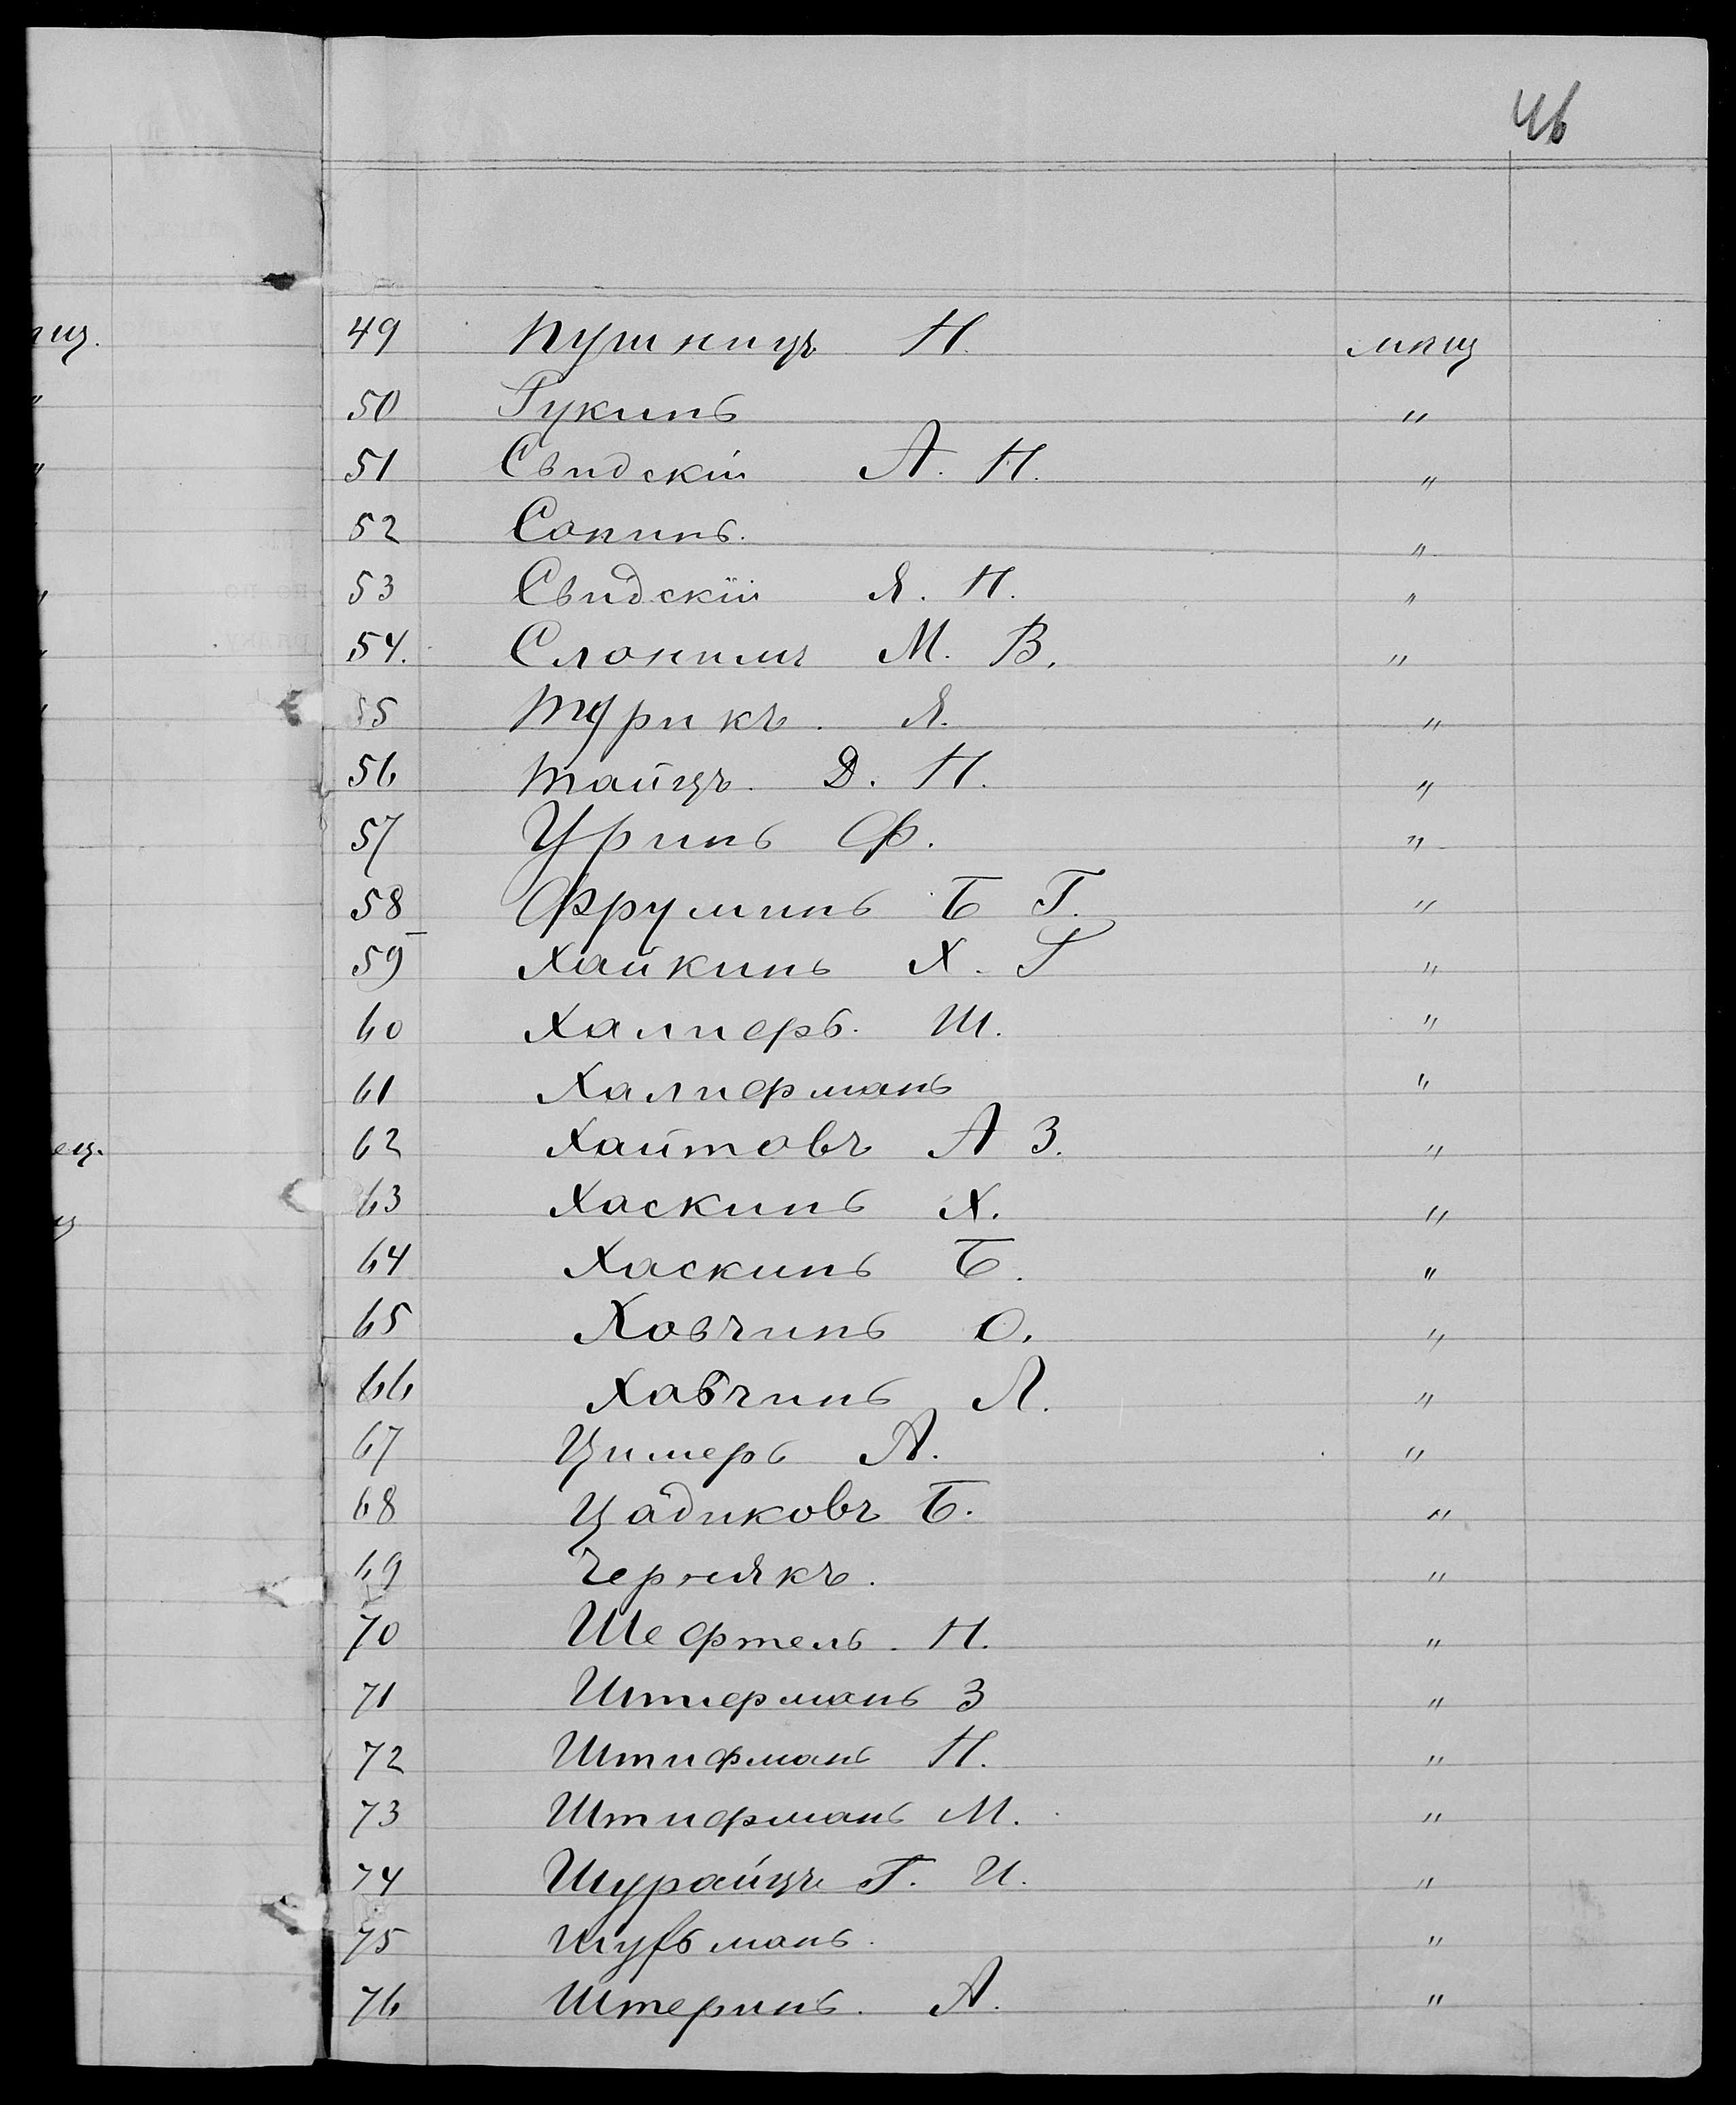 46
49 Пушницъ Н. мпщ
50 Гукинъ "
51 Свидскій А. Н. "
52 Сонинъ. "
53 Свидскій Я. Н. "
54. Слонимъ М. В. "
55 Турикъ. Я. "
56 Тайцъ. Д. Н. "
57 Уринъ Ф. "
58 Фруминъ Б Г. "
59 Хайкинъ Х. Г "
60 Халперъ. Ш. "
61 Халперманъ "
62 Хаитовъ А З. "
63 Хаскинъ Х. "
64 Хаскинъ Б. "
65 Ховчинъ О. "
66 Хавчинъ Л. "
67 Цимеръ А. "
68 Цадиковъ Б. "
69 Чернякъ. "
70 Шефтель. Н. "
71 Штиерманъ З "
72 Штифманъ Н. "
73 Штифманъ М. "
74 Шурайцъ Г. И. "
75 Шубманъ. "
76 Штеринъ. А. "